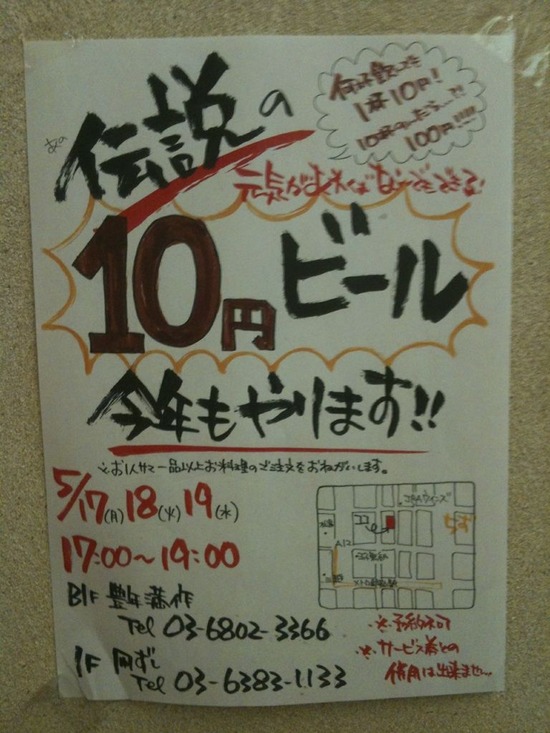 あの
伝説の
何杯飲んでも
1杯10円!
10杯のんだら…で
100円!!!!
元気があればなんでもできる!
10円ビール
今年もやります!!
※お1人サマ一品以上お料理のご注文をおねがいします。
5/17(月)18(火)19(水)
17:00〜19:00
B1F 豊年満作
Tel 03-6802-3366
1F 同ずし
Tel 03-6383-1133
ココ
A12
※予約不可
※サービス券との
併用は出来ません。